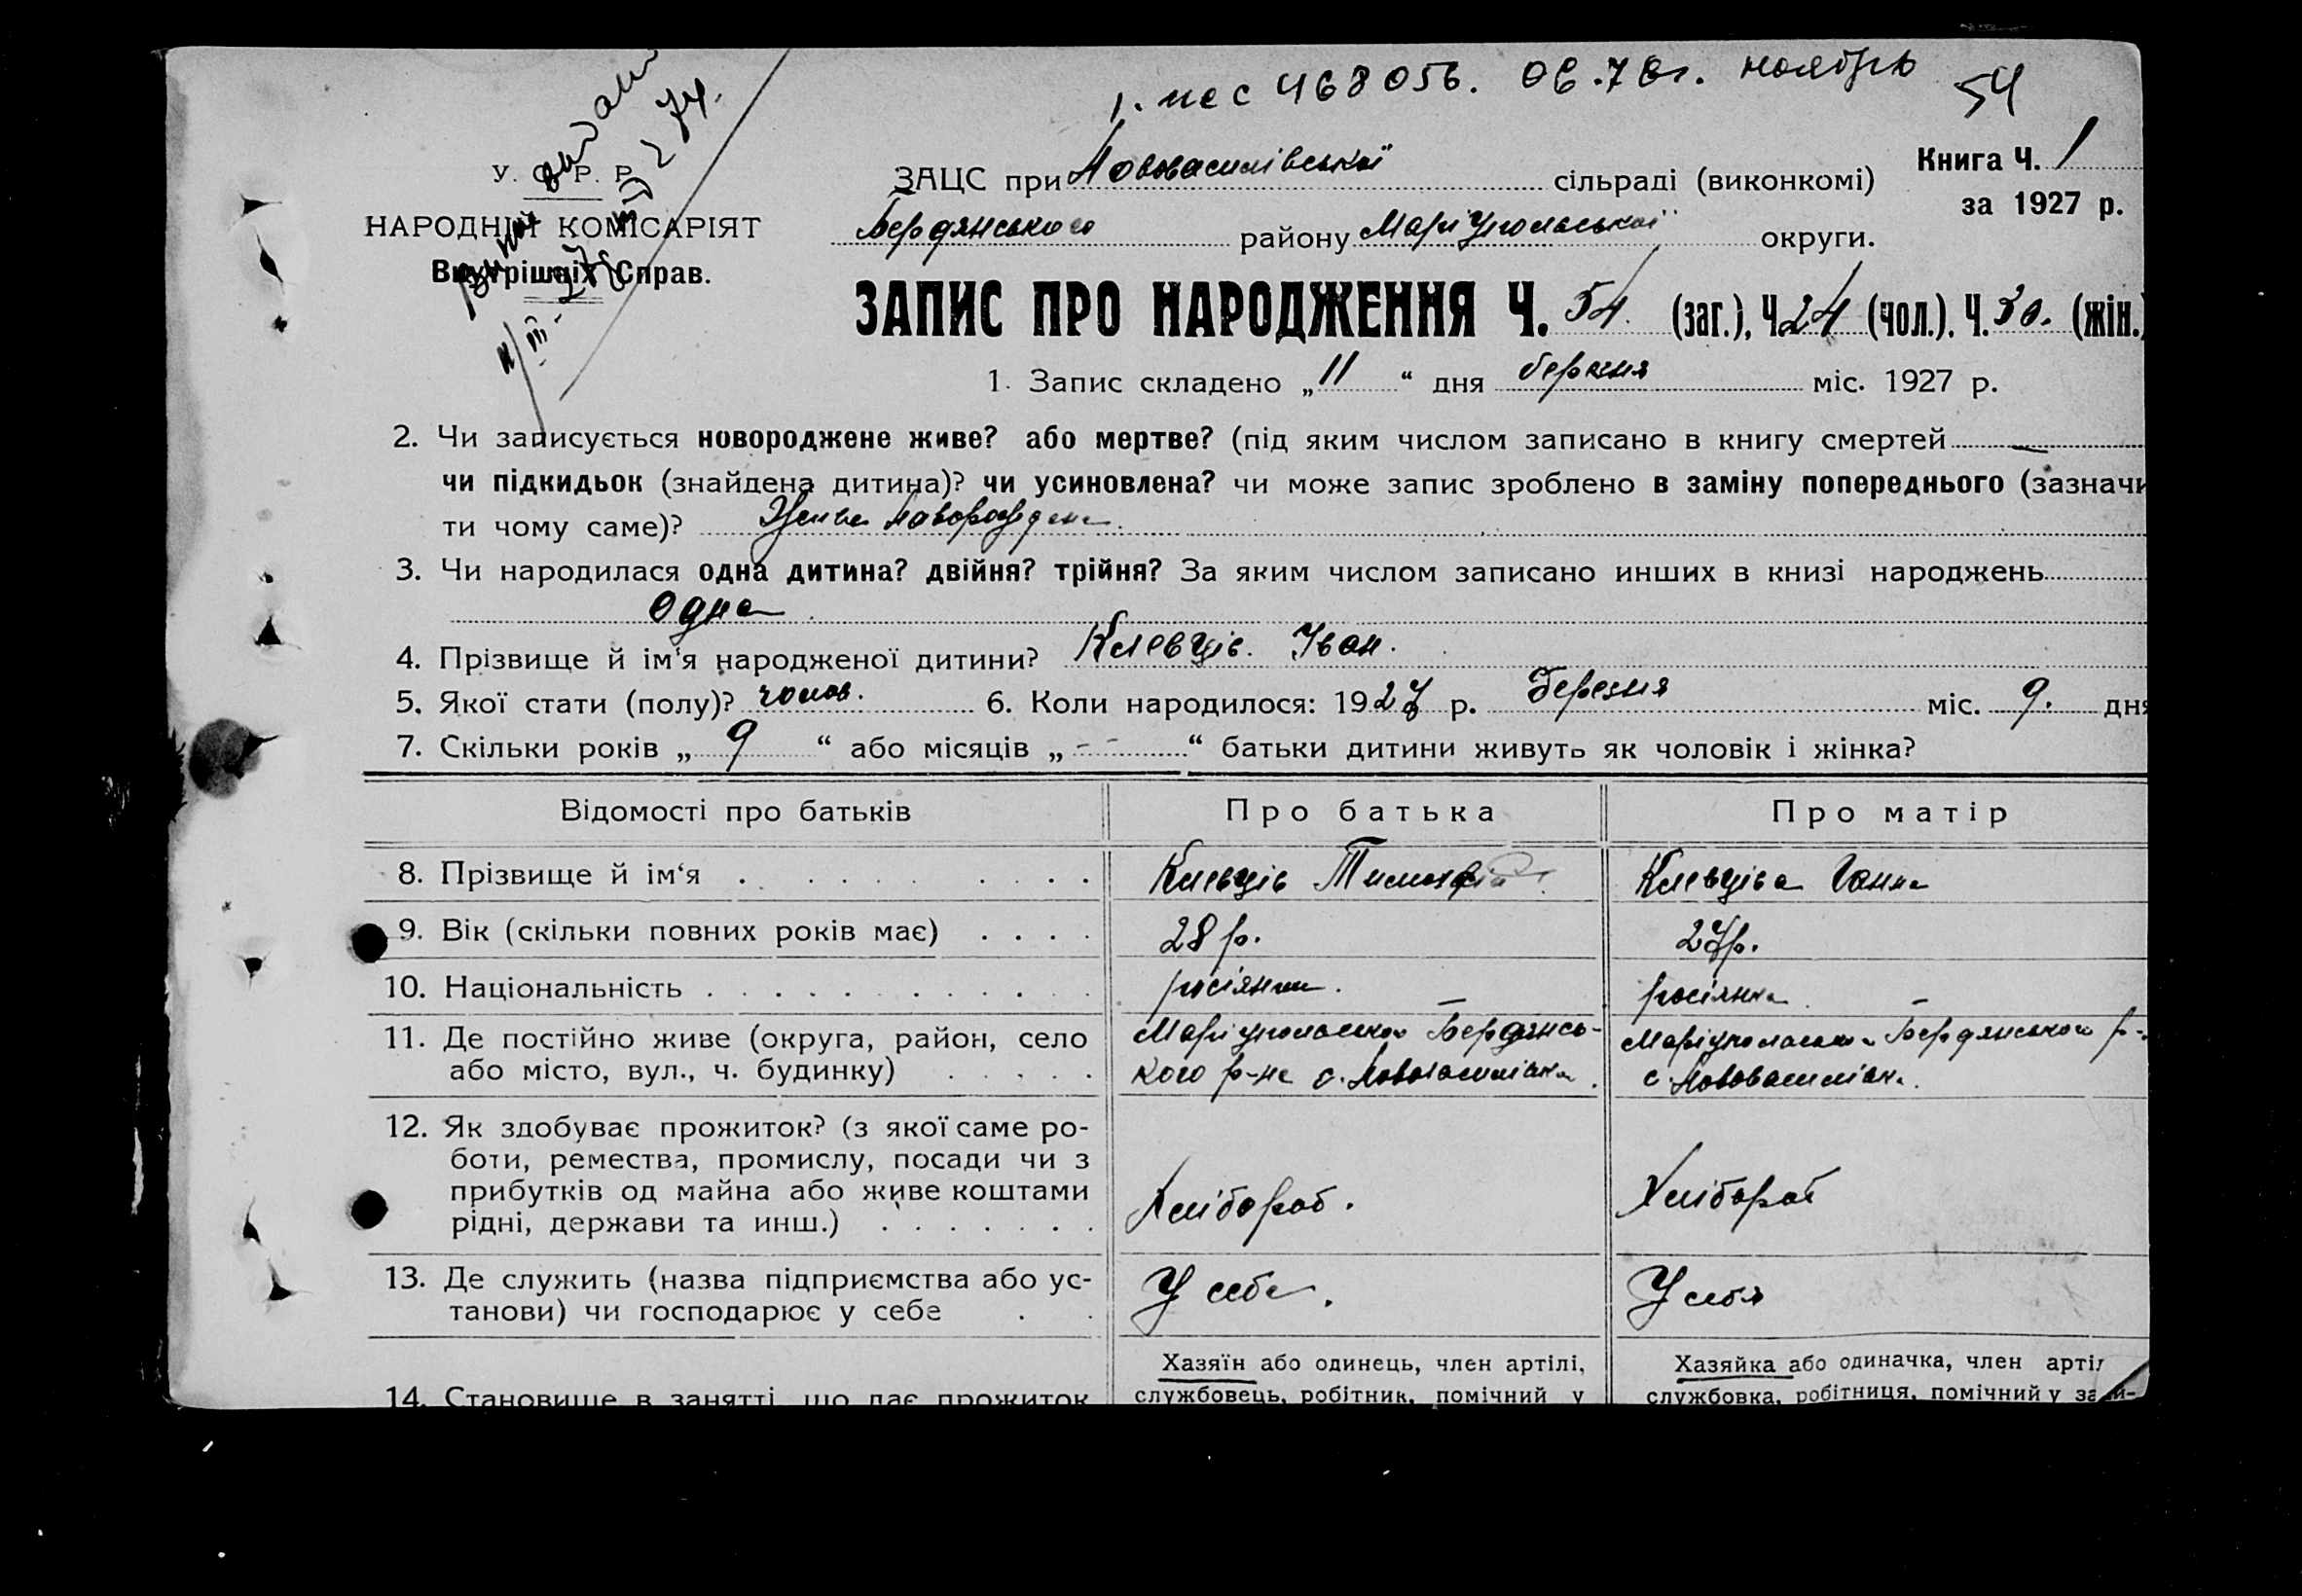 1. пес 468056. 06.78г. ноябрь 54
У. С. Р. Р.
НАРОДНІЙ КОМІСАРІЯТ
Внутрішніх Справ.
ЗАЦС при Нововасилівської сільраді (виконкомі)
Книга Ч. 1
за 1927 р.
Бердянського району Маріупольської округи.
ЗАПИС ПРО НАРОДЖЕННЯ Ч. 54 (заг.), Ч. 24 (чол.), Ч. 30. (жін.)
1. Запис складено „11“ дня березня міс. 1927 р.
2. Чи записується новороджене живе? або мертве? (під яким числом записано в книгу смертей —
чи підкидьок (знайдена дитина)? чи усиновлена? чи може запис зроблено в заміну попереднього (зазначи
ти чому саме)? Живе
3. Чи народилася одна дитина? двійня? трійня? За яким числом записано инших в книзі народжень
Одна
4. Прізвище й ім'я народженої дитини? Клевців. Іван.
5. Якої стати (полу)? чолов. 6. Коли народилося: 1927 р. березня міс. 9. дня
7. Скільки років „9“ або місяців „--“ батьки дитини живуть як чоловік і жінка?
Відомості про батьків Про батька Про матір
8. Прізвище й ім'я Клевців Тимофій Клевціва Ганна
9. Вік (скільки повних років має) 28 р. 27 р.
10. Національність росіянин. росіянка
11. Де постійно живе (округа, район, село
або місто, вул., ч. будинку)
Маріупольської Бердянсь-
кого р-на с. Нововасилівка.
Маріупольської Бердянського р-
с. Нововасилівка.
12. Як здобуває прожиток? (з якої саме ро-
боти, ремества, промислу, посади чи з
прибутків од майна або живе коштами
рідні, держави та инш.)
Хлібороб. Хлібороб
13. Де служить (назва підприємства або ус-
танови) чи господарює у себе
У себе. У себя
14. Становище в занятті, що дає прожиток
Хазяїн або одинець, член артілі,
службовець, робітник, помічний у
Хазяйка або одиначка, член артіл
службовка, робітниця, помічний у